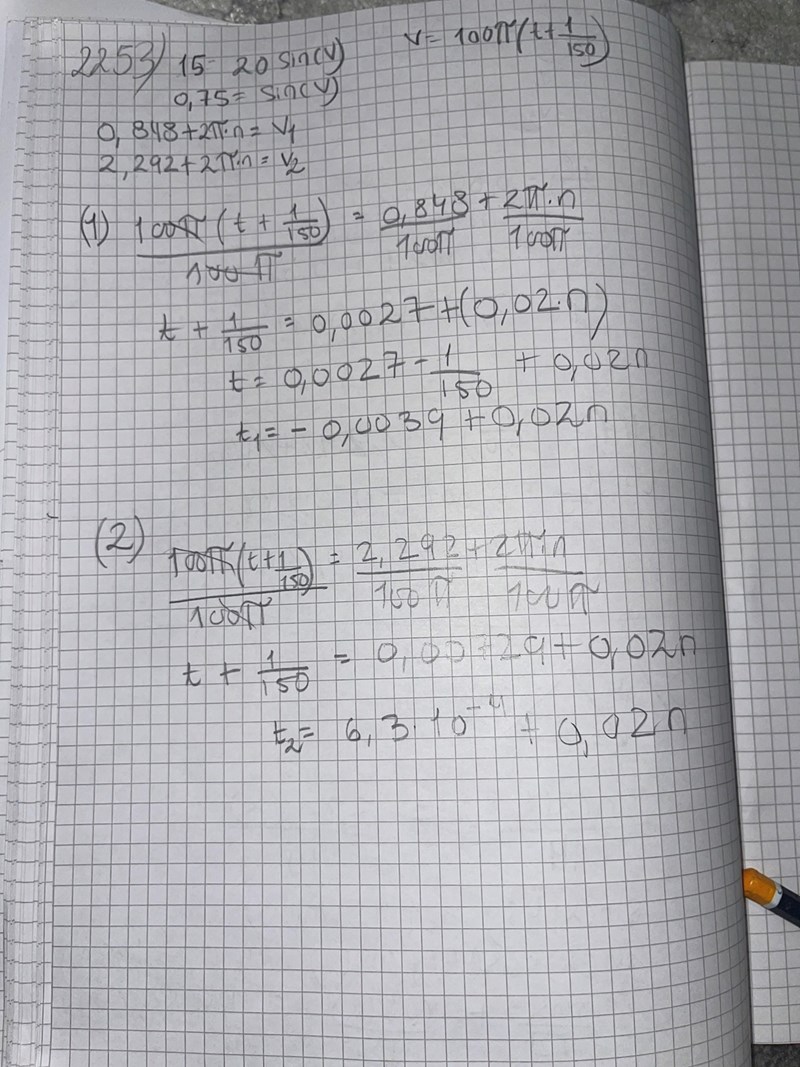 2253) 15 = 20 sin(v) v = 100π(t + 1/150)
0,75 = sin(v)
0,848 + 2π·n = v₁
2,292 + 2π·n = v₂
(1) 100π(t + 1/150) / 100π = 0,848/100π + 2π·n/100π
t + 1/150 = 0,0027 + (0,02·n)
t = 0,0027 - 1/150 + 0,02n
t₁ = - 0,0039 + 0,02n
(2) 100π(t + 1/150) / 100π = 2,292/100π + 2π·n/100π
t + 1/150 = 0,00729 + 0,02n
t₂ = 6,3·10⁻⁴ + 0,02n